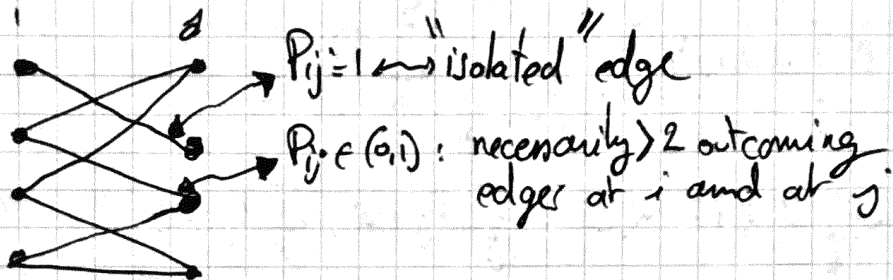 i j
P_ij = 1 ⟷ "isolated" edge
P_ij ∈ (0,1) : necessarily ≥ 2 outcoming
edges at i and at j